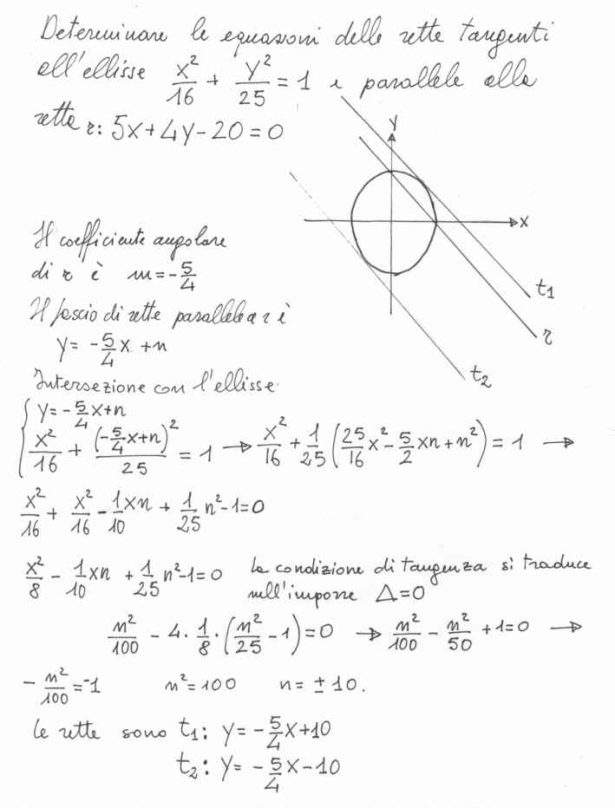 Determinare le equazioni delle rette tangenti
all'ellisse x²/16 + y²/25 = 1 e parallele alla
retta r: 5x+4y-20=0
y
x
t₁
r
t₂
Il coefficiente angolare
di r è m=-5/4
Il fascio di rette parallele a r è
y= -5/4 x +n
Intersezione con l'ellisse
{ y=-5/4 x+n
x²/16 + (-5/4 x+n)²/25 = 1 → x²/16 + 1/25 (25/16 x² - 5/2 xn + n²) = 1 →
x²/16 + x²/16 - 1/10 xn + 1/25 n²-1=0
x²/8 - 1/10 xn + 1/25 n²-1=0 la condizione di tangenza si traduce
nell'imporre Δ=0
n²/100 - 4 · 1/8 · (n²/25 - 1) = 0 → n²/100 - n²/50 + 1=0 →
- n²/100 = -1 n²=100 n= ± 10.
le rette sono t₁: y= -5/4 x+10
t₂: y= -5/4 x-10